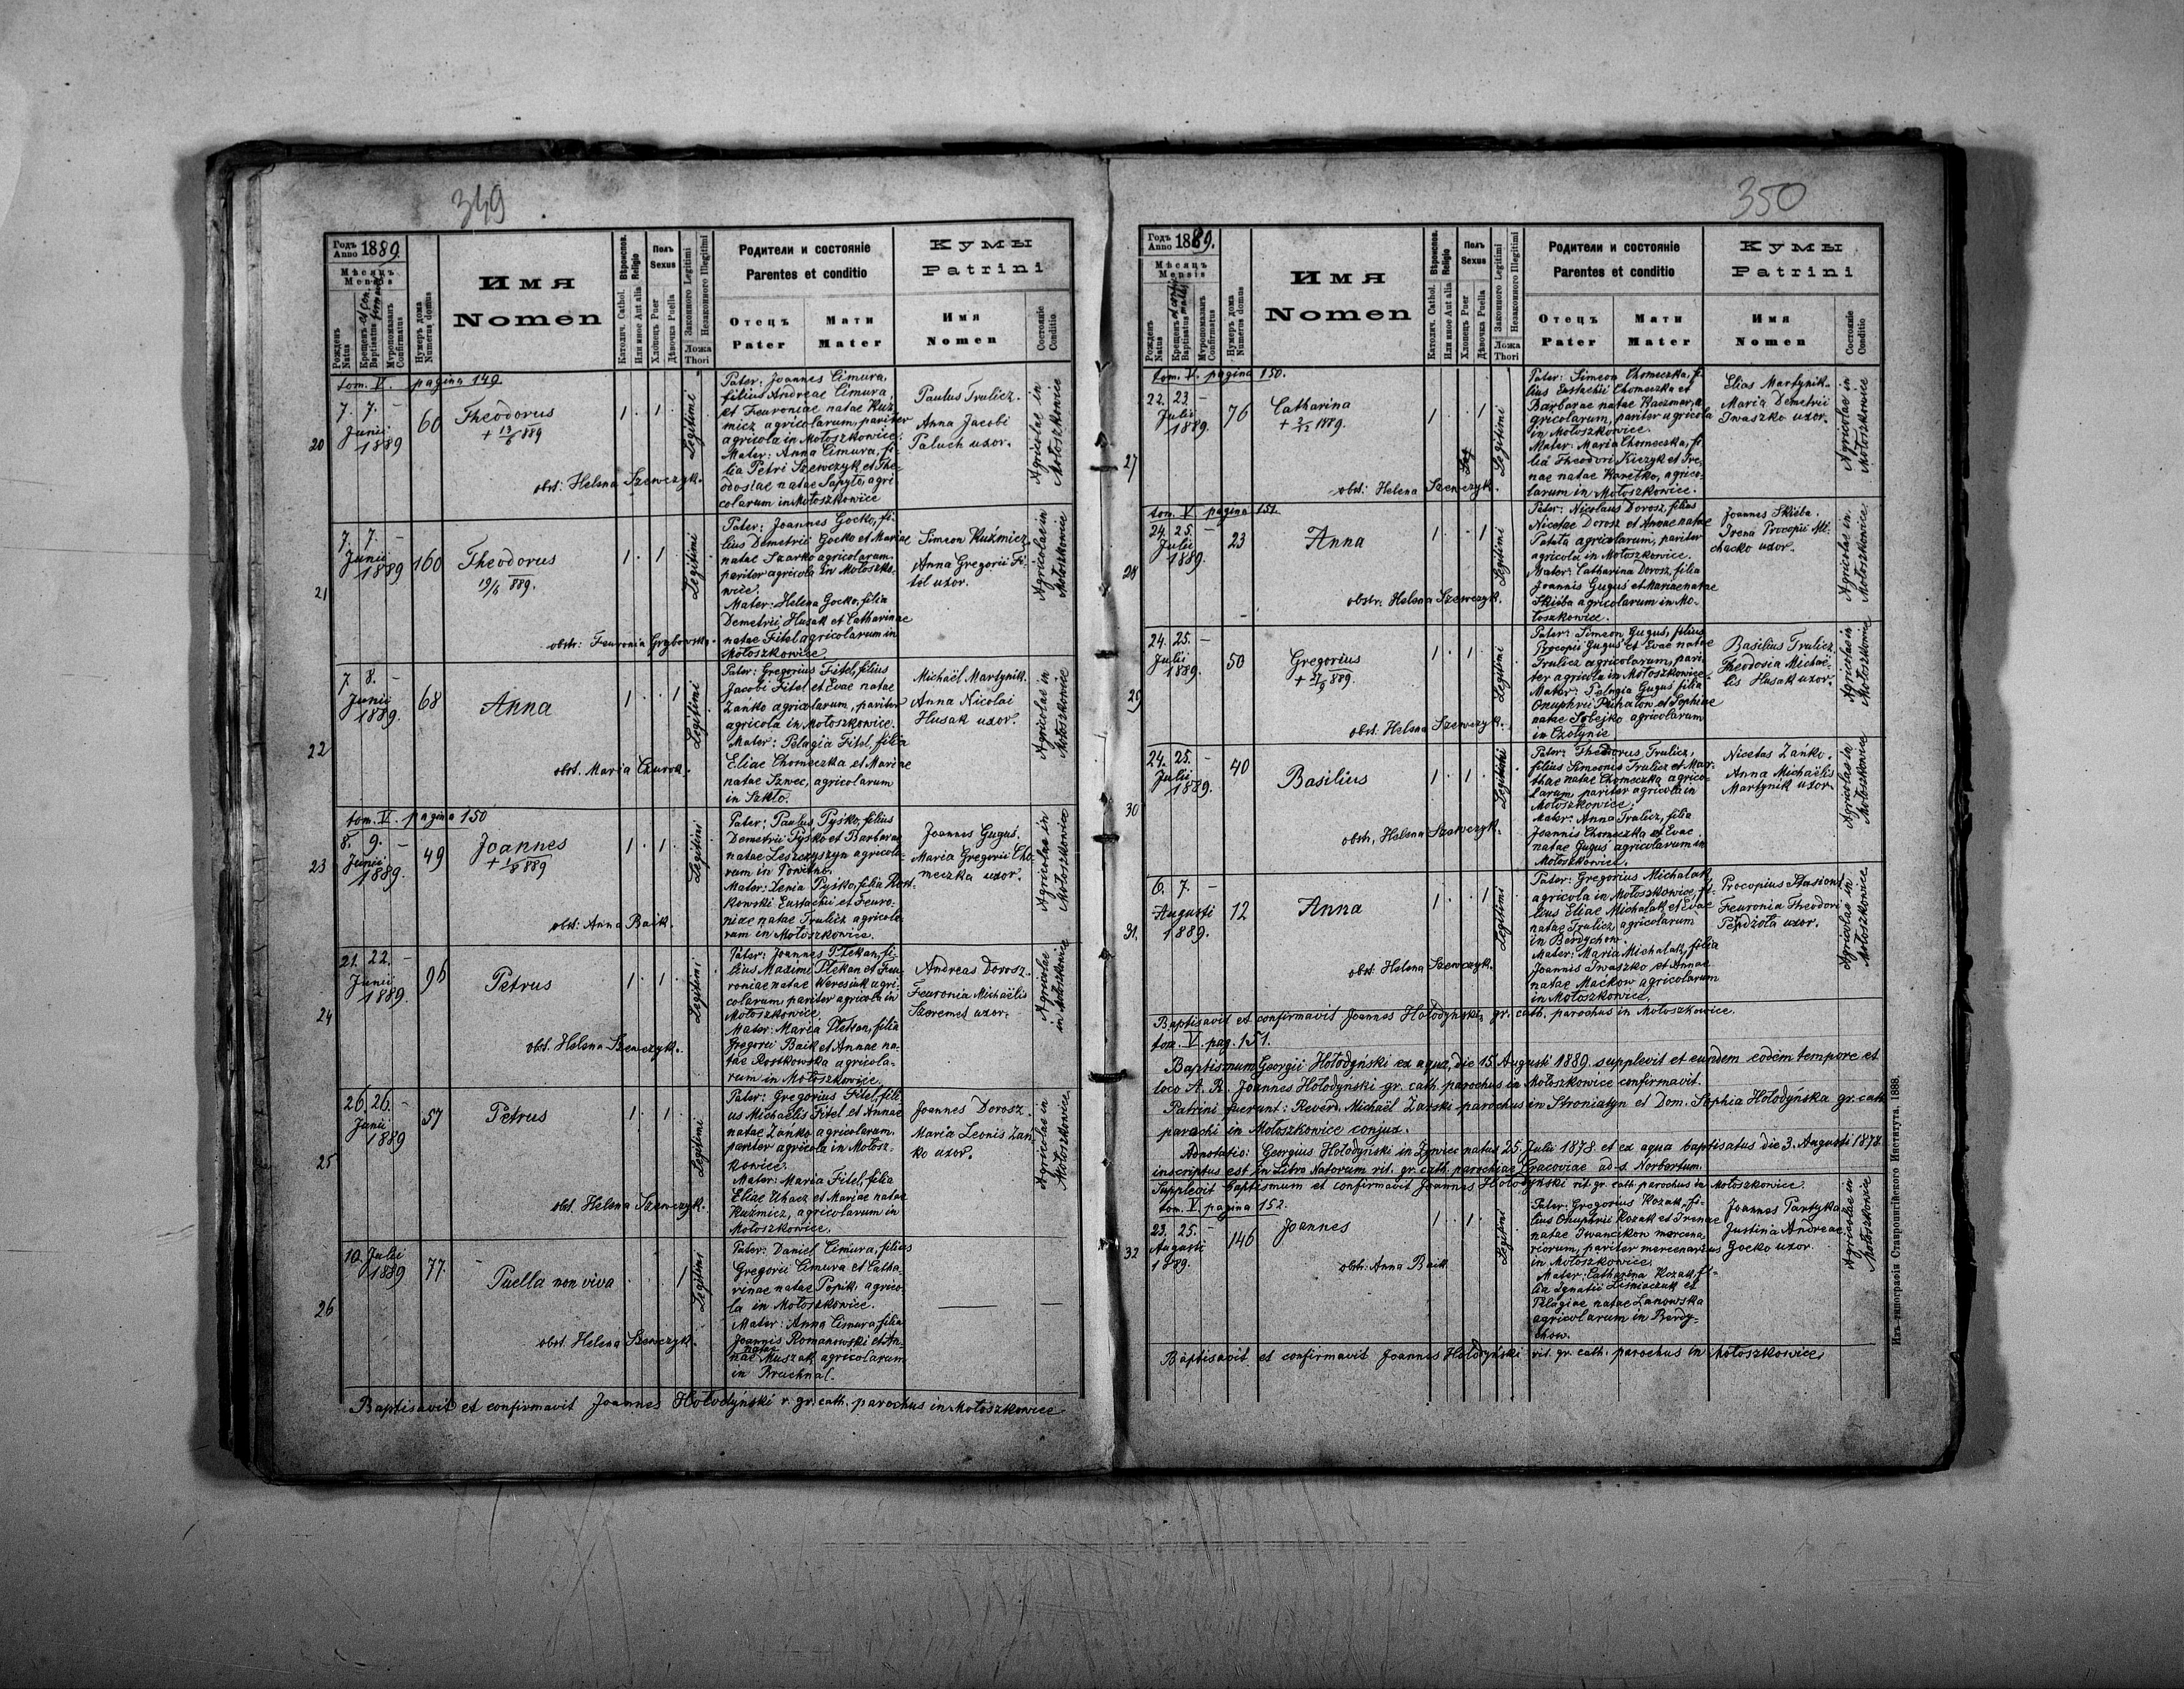 349
Годъ Anno 1889.
Мѣсяцъ Mensis
Рожденъ Natus
Крещенъ Baptisatus
Мѵропомазанъ Confirmatus
Нумеръ дома Numerus domus
Имя
Nomen
Католич. Cathol. Вѣроиспов. Religio
Или иное Aut alia
Полъ Sexus
Хлопецъ Puer
Дѣвочка Puella
Законного Legitimi
Незаконного Illegitimi
Ложа Thori
Родители и состояніе
Parentes et conditio
Отецъ Pater
Мати Mater
Кумы
Patrini
Имя
Nomen
Состояніе Conditio
tom. V. pagina 149.
20
7. 7. –
Junii
1889
60
Theodorus
+ 13/6 889
1 . 1 .
Legitimi
Pater: Joannes Cimura,
filius Andreae Cimura,
et Feuroniae natae Kuz
micz agricolarum, pariter
agricola in Mołoszkowice.
Mater: Anna Cimura, fi-
lia Petri Szewczyk et The-
odosiae natae Sapyto, agri
colarum in Mołoszkowice
Paulus Trulicz.
Anna Jacobi
Paluch uxor.
Agricolae in
Mołoszkowice
obst: Helena Szewczyk.
21
7. 7. –
Junii
1889
160
Theodorus
19/6 889.
1 . 1
Legitimi
Pater: Joannes Gocko, fi-
lius Demetrii Gocko et Mariae
natae Skarko agricolarum
pariter agricola in Mołoszko-
wice.
Mater: Helena Gocko, filia
Demetrii Husak et Catharinae
natae Fitel agricolarum in
Mołoszkowice
Simeon Kuźmicz.
Anna Gregorii Fi-
tel uxor.
Agricolae in
Mołoszkowice
obstr: Feuronia Grzybowska.
22
7. 8. –
Junii
1889.
68
Anna
1 . . 1
Legitimi
Pater: Gregorius Fitel, filius
Jacobi Fitel et Evae natae
Zańko agricolarum, pariter
agricola in Mołoszkowice.
Mater: Pelagia Fitel, filia
Eliae Chomeczka et Mariae
natae Szwec, agricolarum
in Szkło.
Michaël Martynik.
Anna Nicolai
Husak uxor.
Agricolae in
Mołoszkowice
obst. Maria
tom. V. pagina 150
23
8. 9. –
Junii
1889.
49
Joannes
+ 1/8 889
1 . 1 .
Legitimi
Pater: Paulus Pyśko, filius
Demetrii Pyśko et Barbarae
natae Leszczyszyn agricola-
rum in
Mater: Xenia Pyśko, filia Rost-
kowski Eustachii et Feuro-
niae natae Trulicz agricola-
rum in Mołoszkowice.
Joannes Guguś.
Maria Gregorii Cho-
meczka uxor.
Agricolae in
Mołoszkowice
obst: Anna Baik.
24
21. 22. –
Junii
1889.
96
Petrus
1 . 1 .
Legitimi
Pater: Joannes Płekan, fi-
lius Maximi Płekan et Feu-
roniae natae Weresiuk agri-
colarum, pariter agricola in
Mołoszkowice.
Mater: Maria Płekan, filia
Gregorii Baik et Annae na-
tae Rostkowska agricola-
rum in Mołoszkowice.
Andreas Dorosz.
Feuronia Michaëlis
Szeremet uxor.
Agricolae
in Mołoszkowice
obst. Helena Szewczyk.
25
26. 26. –
Junii
1889
57
Petrus
1 . 1
Legitimi
Pater: Gregorius Fitel, fili-
us Michaëlis Fitel et Annae
natae Zańko agricolarum.
pariter agricola in Mołosz-
kowice.
Mater: Maria Fitel, filia
Eliae Uhacz et Mariae natae
Kuzmicz, agricolarum in
Mołoszkowice.
Joannes Dorosz.
Maria Leonis Zań-
ko uxor.
Agricolae in
Mołoszkowice
obst. Helena Szewczyk.
26
10. Julii –
1889
77.
Puella non viva
. . 1
Legitimi
Pater: Daniel Cimura, filius
Gregorii Cimura et Catha-
rinae natae Popik agrico-
la in Mołoszkowice.
Mater: Anna Cimura, filia
Joannis Romanowski et An-
nae natae Muszak agricolarum
in Bruchnal.
obst. Helena Szewczyk.
Baptisavit et confirmavit Joannes Hołodyński r. gr. cath. parochus in Mołoszkowice
350
Годъ Anno 1889.
Мѣсяцъ Mensis
Рожденъ Natus
Крещенъ Baptisatus
Мѵропомазанъ Confirmatus
Нумеръ дома Numerus domus
Имя
Nomen
Католич. Cathol. Вѣроиспов. Religio
Или иное Aut alia
Полъ Sexus
Хлопецъ Puer
Дѣвочка Puella
Законного Legitimi
Незаконного Illegitimi
Ложа Thori
Родители и состояніе
Parentes et conditio
Отецъ Pater
Мати Mater
Кумы
Patrini
Имя
Nomen
Состояніе Conditio
tom. V. pagina 150.
27
22. 23. –
Julii
1889.
76
Catharina
+ 2/12 1889.
1 . . 1
Legitimi
Pater: Simeon Chomeczka, fi-
lius Eustachii Chomeczka et
Barbarae natae Kaczmar, a-
gricolarum, pariter agricola
in Mołoszkowice.
Mater: Maria Chomeczka, fi
lia Theodori Kiczyk et Ire-
nae natae Koretko, agrico-
larum in Mołoszkowice.
Elias Martynik.
Maria Demetrii
Iwaszko uxor.
Agricolae in
Mołoszkowice
obst: Helena Szewczyk.
tom. V pagina 151.
28
24. 25. –
Julii
1889.
23
Anna
1 . . 1
Legitimi
Pater: Nicolaus Dorosz, filius
Nicetae Dorosz et Annae natae
Patata agricolarum, pariter
agricola in Mołoszkowice.
Mater: Catharina Dorosz, filia
Joannis Guguś et Mariae natae
Skiba agricolarum in Mo-
łoszkowice.
Joannes Skiba.
Irena Procopii Mi-
chacko uxor.
Agricolae in
Mołoszkowice
obstr: Helena Szewczyk.
29
24. 25. –
Julii
1889.
50
Gregorius
+ 27/9 889.
1 . 1 .
Legitimi
Pater: Simeon Guguś, filius
Procopii Guguś et Evae natae
Trulicz agricolarum, pari-
ter agricola in Mołoszkowice.
Mater: Pelagia Guguś filia
Onuphrii Puhaton et Sophiae
natae Sobejko agricolarum
in Czołynie
Basilius Trulicz.
Theodosia Michaë-
lis Husak uxor.
Agricolae in
Mołoszkowice
obst. Helena Szewczyk.
30
24. 25. –
Julii
1889.
40
Basilius
1 . 1 .
Legitimi
Pater: Theodorus Trulicz,
filius Simeonis Trulicz et Mar-
thae natae Chomeczka agrico-
larum, pariter agricola in
Mołoszkowice.
Mater: Anna Trulicz, filia
Joannis Chomeczka et Evae
natae Guguś agricolarum in
Mołoszkowice.
Nicetas Zańko.
Anna Michaëlis
Martynik uxor.
Agricolae in
Mołoszkowice
obstr. Helena Szewczyk.
31.
6. 7. –
Augusti
1889.
12
Anna
1 . . 1
Legitimi
Pater: Gregorius Michalak,
agricola in Mołoszkowice, fi-
lius Eliae Michalak et Evae
natae Trulicz agricolarum
in Berdychow.
Mater: Maria Michalak, filia
Joannis Iwaszko et Annae
natae Maćkow agricolarum
in Mołoszkowice.
Procopius Stasiow.
Feuronia Theodori
Pendziola uxor.
Agricolae in
Mołoszkowice
obst. Helena Szewczyk.
Baptisavit et confirmavit Joannes Hołodyński, gr. cath. parochus in Mołoszkowice.
tom. V. pag. 151.
Baptismum Georgii Hołodyński ex aqua, die 15. Augusti 1889. supplevit et eundem eodem tempore et
loco A. R. Joannes Hołodyński gr. cath. parochus in Mołoszkowice confirmavit.
Patrini fuerunt: Reverd. Michaël Zarski parochus in Stroniatyn et Dom. Sophia Hołodyńska gr. cath
parochi in Mołoszkowice conjux.
Adnotatio: Georgius Hołodyński in Zywiec natus 25. Julii 1878. et ex aqua baptisatus die 3. Augusti 1878
inscriptus est in Libro Natorum rit. gr. cath. parochiae Cracoviae ad s. Norbertum.
Supplevit baptismum et confirmavit Joannes Hołodyński rit. gr. cath. parochus in Mołoszkowice.
tom. V. pagina 152.
32
23. 25. –
Augusti
1889.
146
Joannes
1 . 1 .
Legitimi
Pater: Gregorius Kozak, fi-
lius Onuphrii Kozak et Irenae
natae Iwancikow mercena-
riorum, pariter mercenarius
in Mołoszkowice.
Mater: Catharina Kozak, fi-
lia Ignatii Liśniaczuk et
Pelagiae natae Lanowska
agricolarum in Berdy-
chow.
Joannes Partyka.
Justina Andreae
Gocko uxor.
Agricolae in
Mołoszkowice
obstr: Anna Baik
Baptisavit et confirmavit Joannes Hołodyński rit. gr. cath. parochus in Mołoszkowice.
Изъ типографіи Ставропигійского Института. 1888.